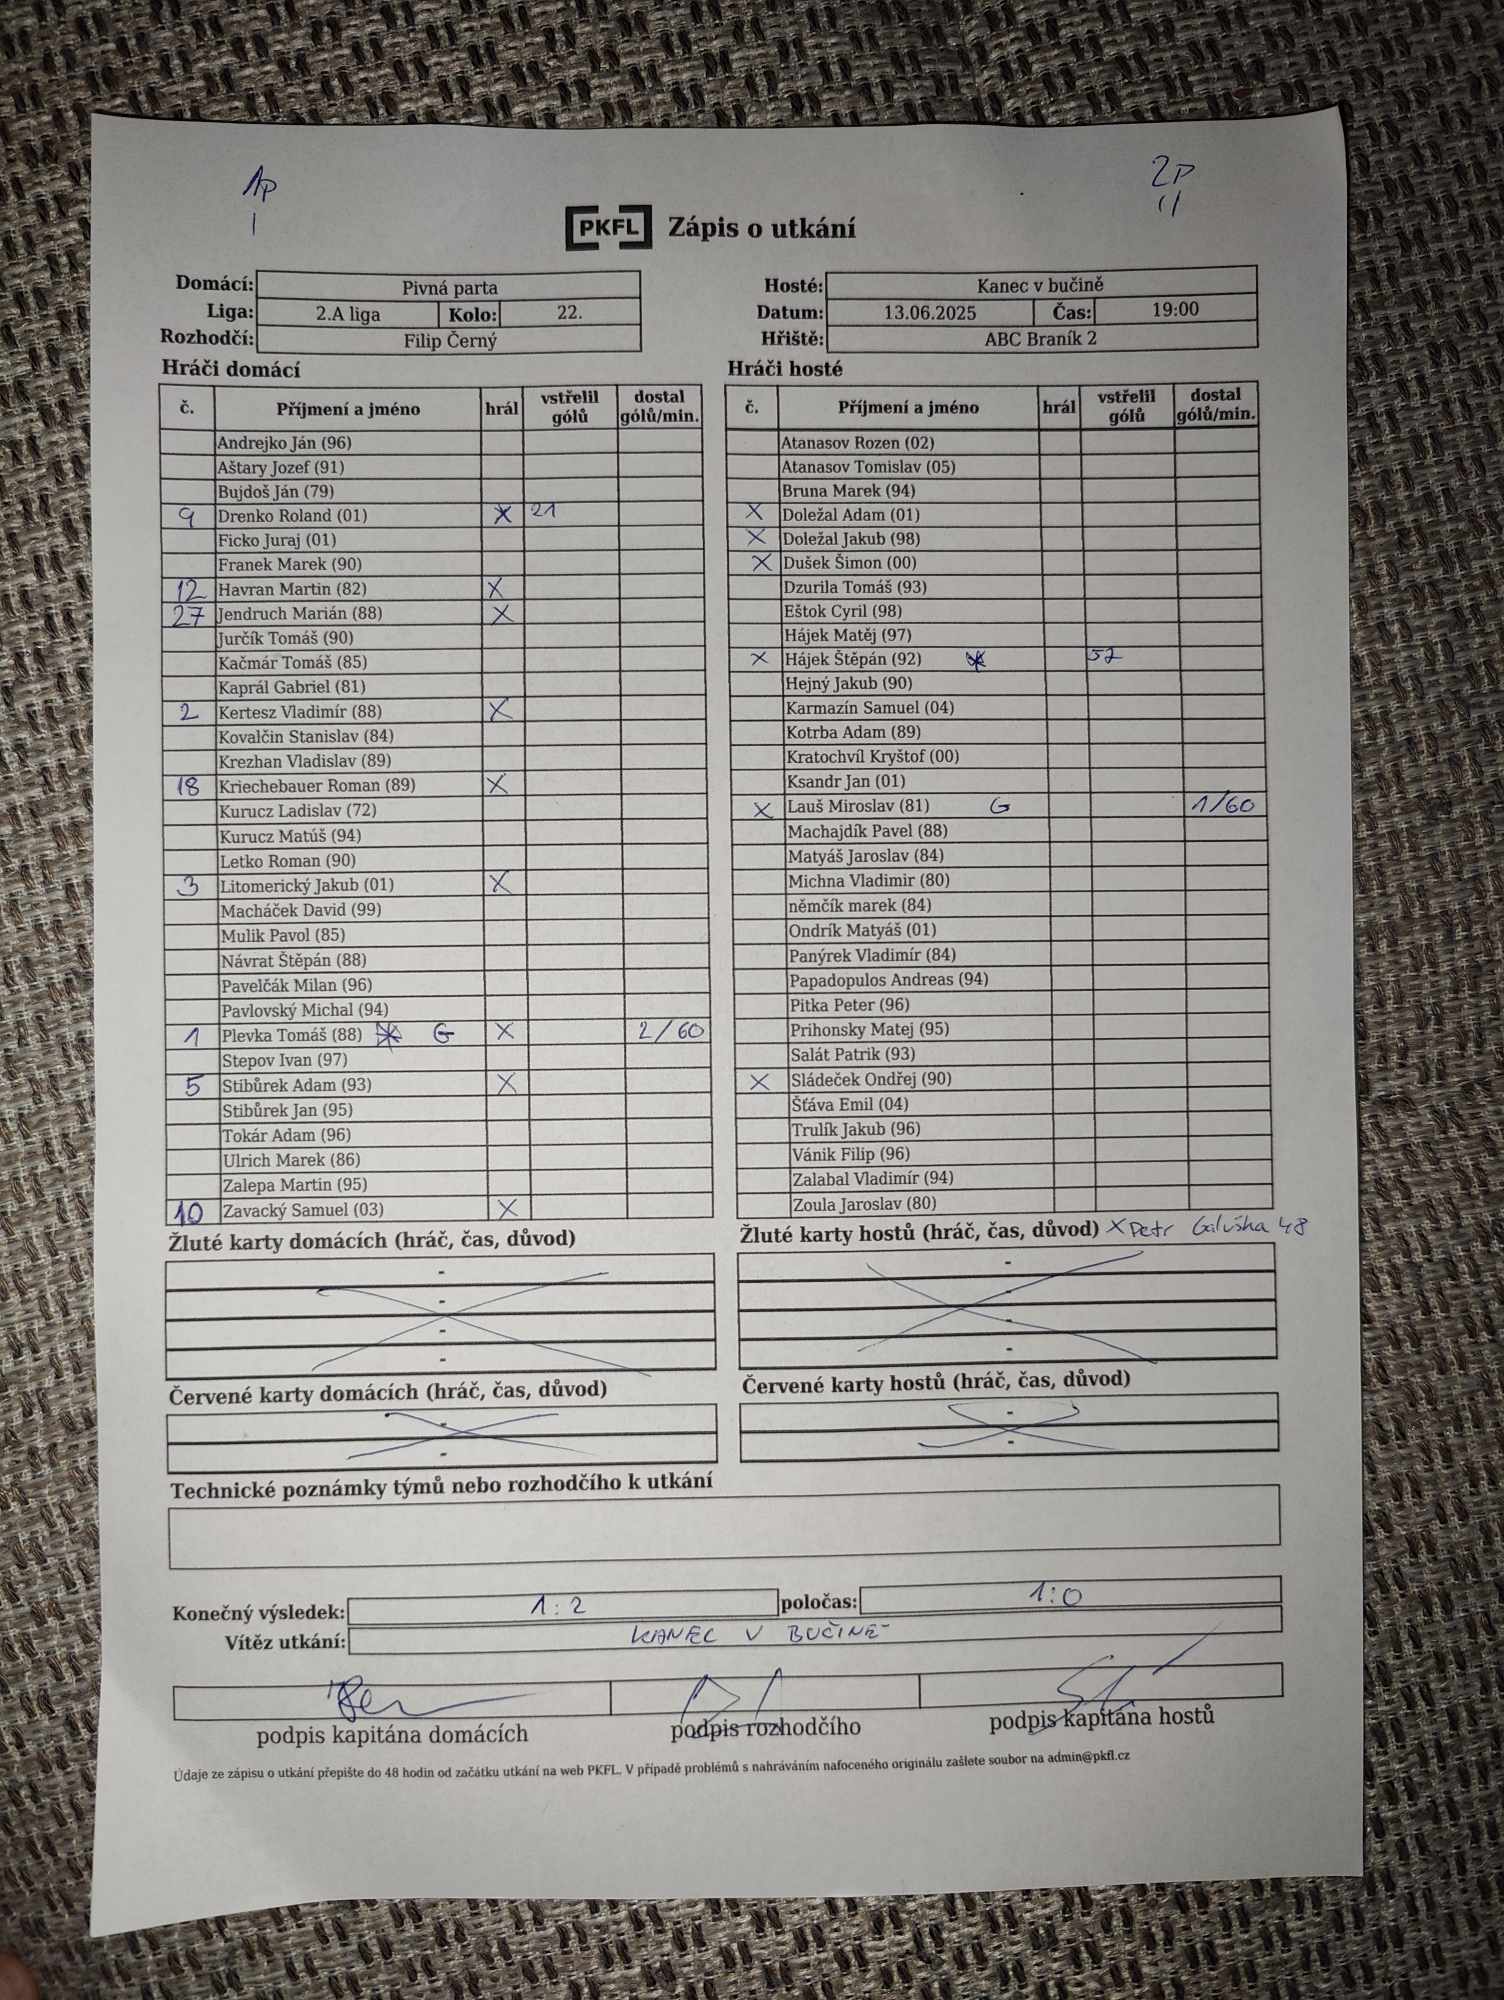 1p 2p
I II
PKFL Zápis o utkání
Domácí: Pivná parta Hosté: Kanec v bučině
Liga: 2.A liga Kolo: 22. Datum: 13.06.2025 Čas: 19:00
Rozhodčí: Filip Černý Hřiště: ABC Braník 2
Hráči domácí
č. Příjmení a jméno hrál vstřelil gólů dostal gólů/min.
Andrejko Ján (96)
Aštary Jozef (91)
Bujdoš Ján (79)
9 Drenko Roland (01) X 21
Ficko Juraj (01)
Franek Marek (90)
12 Havran Martin (82) X
27 Jendruch Marián (88) X
Jurčík Tomáš (90)
Kačmár Tomáš (85)
Kaprál Gabriel (81)
2 Kertesz Vladimír (88) X
Kovalčin Stanislav (84)
Krezhan Vladislav (89)
18 Kriechebauer Roman (89) X
Kurucz Ladislav (72)
Kurucz Matúš (94)
Letko Roman (90)
3 Litomerický Jakub (01) X
Macháček David (99)
Mulik Pavol (85)
Návrat Štěpán (88)
Pavelčák Milan (96)
Pavlovský Michal (94)
1 Plevka Tomáš (88) * G X 2/60
Stepov Ivan (97)
5 Stibůrek Adam (93) X
Stibůrek Jan (95)
Tokár Adam (96)
Ulrich Marek (86)
Zalepa Martin (95)
10 Zavacký Samuel (03) X
Hráči hosté
č. Příjmení a jméno hrál vstřelil gólů dostal gólů/min.
Atanasov Rozen (02)
Atanasov Tomislav (05)
Bruna Marek (94)
X Doležal Adam (01)
X Doležal Jakub (98)
X Dušek Šimon (00)
Dzurila Tomáš (93)
Eštok Cyril (98)
Hájek Matěj (97)
X Hájek Štěpán (92) * 57
Hejný Jakub (90)
Karmazín Samuel (04)
Kotrba Adam (89)
Kratochvíl Kryštof (00)
Ksandr Jan (01)
X Lauš Miroslav (81) G 1/60
Machajdík Pavel (88)
Matyáš Jaroslav (84)
Michna Vladimir (80)
němčík marek (84)
Ondrík Matyáš (01)
Panýrek Vladimír (84)
Papadopulos Andreas (94)
Pitka Peter (96)
Prihonsky Matej (95)
Salát Patrik (93)
X Sládeček Ondřej (90)
Šťáva Emil (04)
Trulík Jakub (96)
Vánik Filip (96)
Zalabal Vladimír (94)
Zoula Jaroslav (80)
Žluté karty domácích (hráč, čas, důvod)
-
-
-
-
Žluté karty hostů (hráč, čas, důvod) X Petr Galuška 48
-
-
-
-
Červené karty domácích (hráč, čas, důvod)
-
-
Červené karty hostů (hráč, čas, důvod)
-
-
Technické poznámky týmů nebo rozhodčího k utkání
Konečný výsledek: 1:2 poločas: 1:0
Vítěz utkání: KANEC V BUČINĚ
podpis kapitána domácích podpis rozhodčího podpis kapitána hostů
Údaje ze zápisu o utkání přepište do 48 hodin od začátku utkání na web PKFL. V případě problémů s nahráváním nafoceného originálu zašlete soubor na admin@pkfl.cz